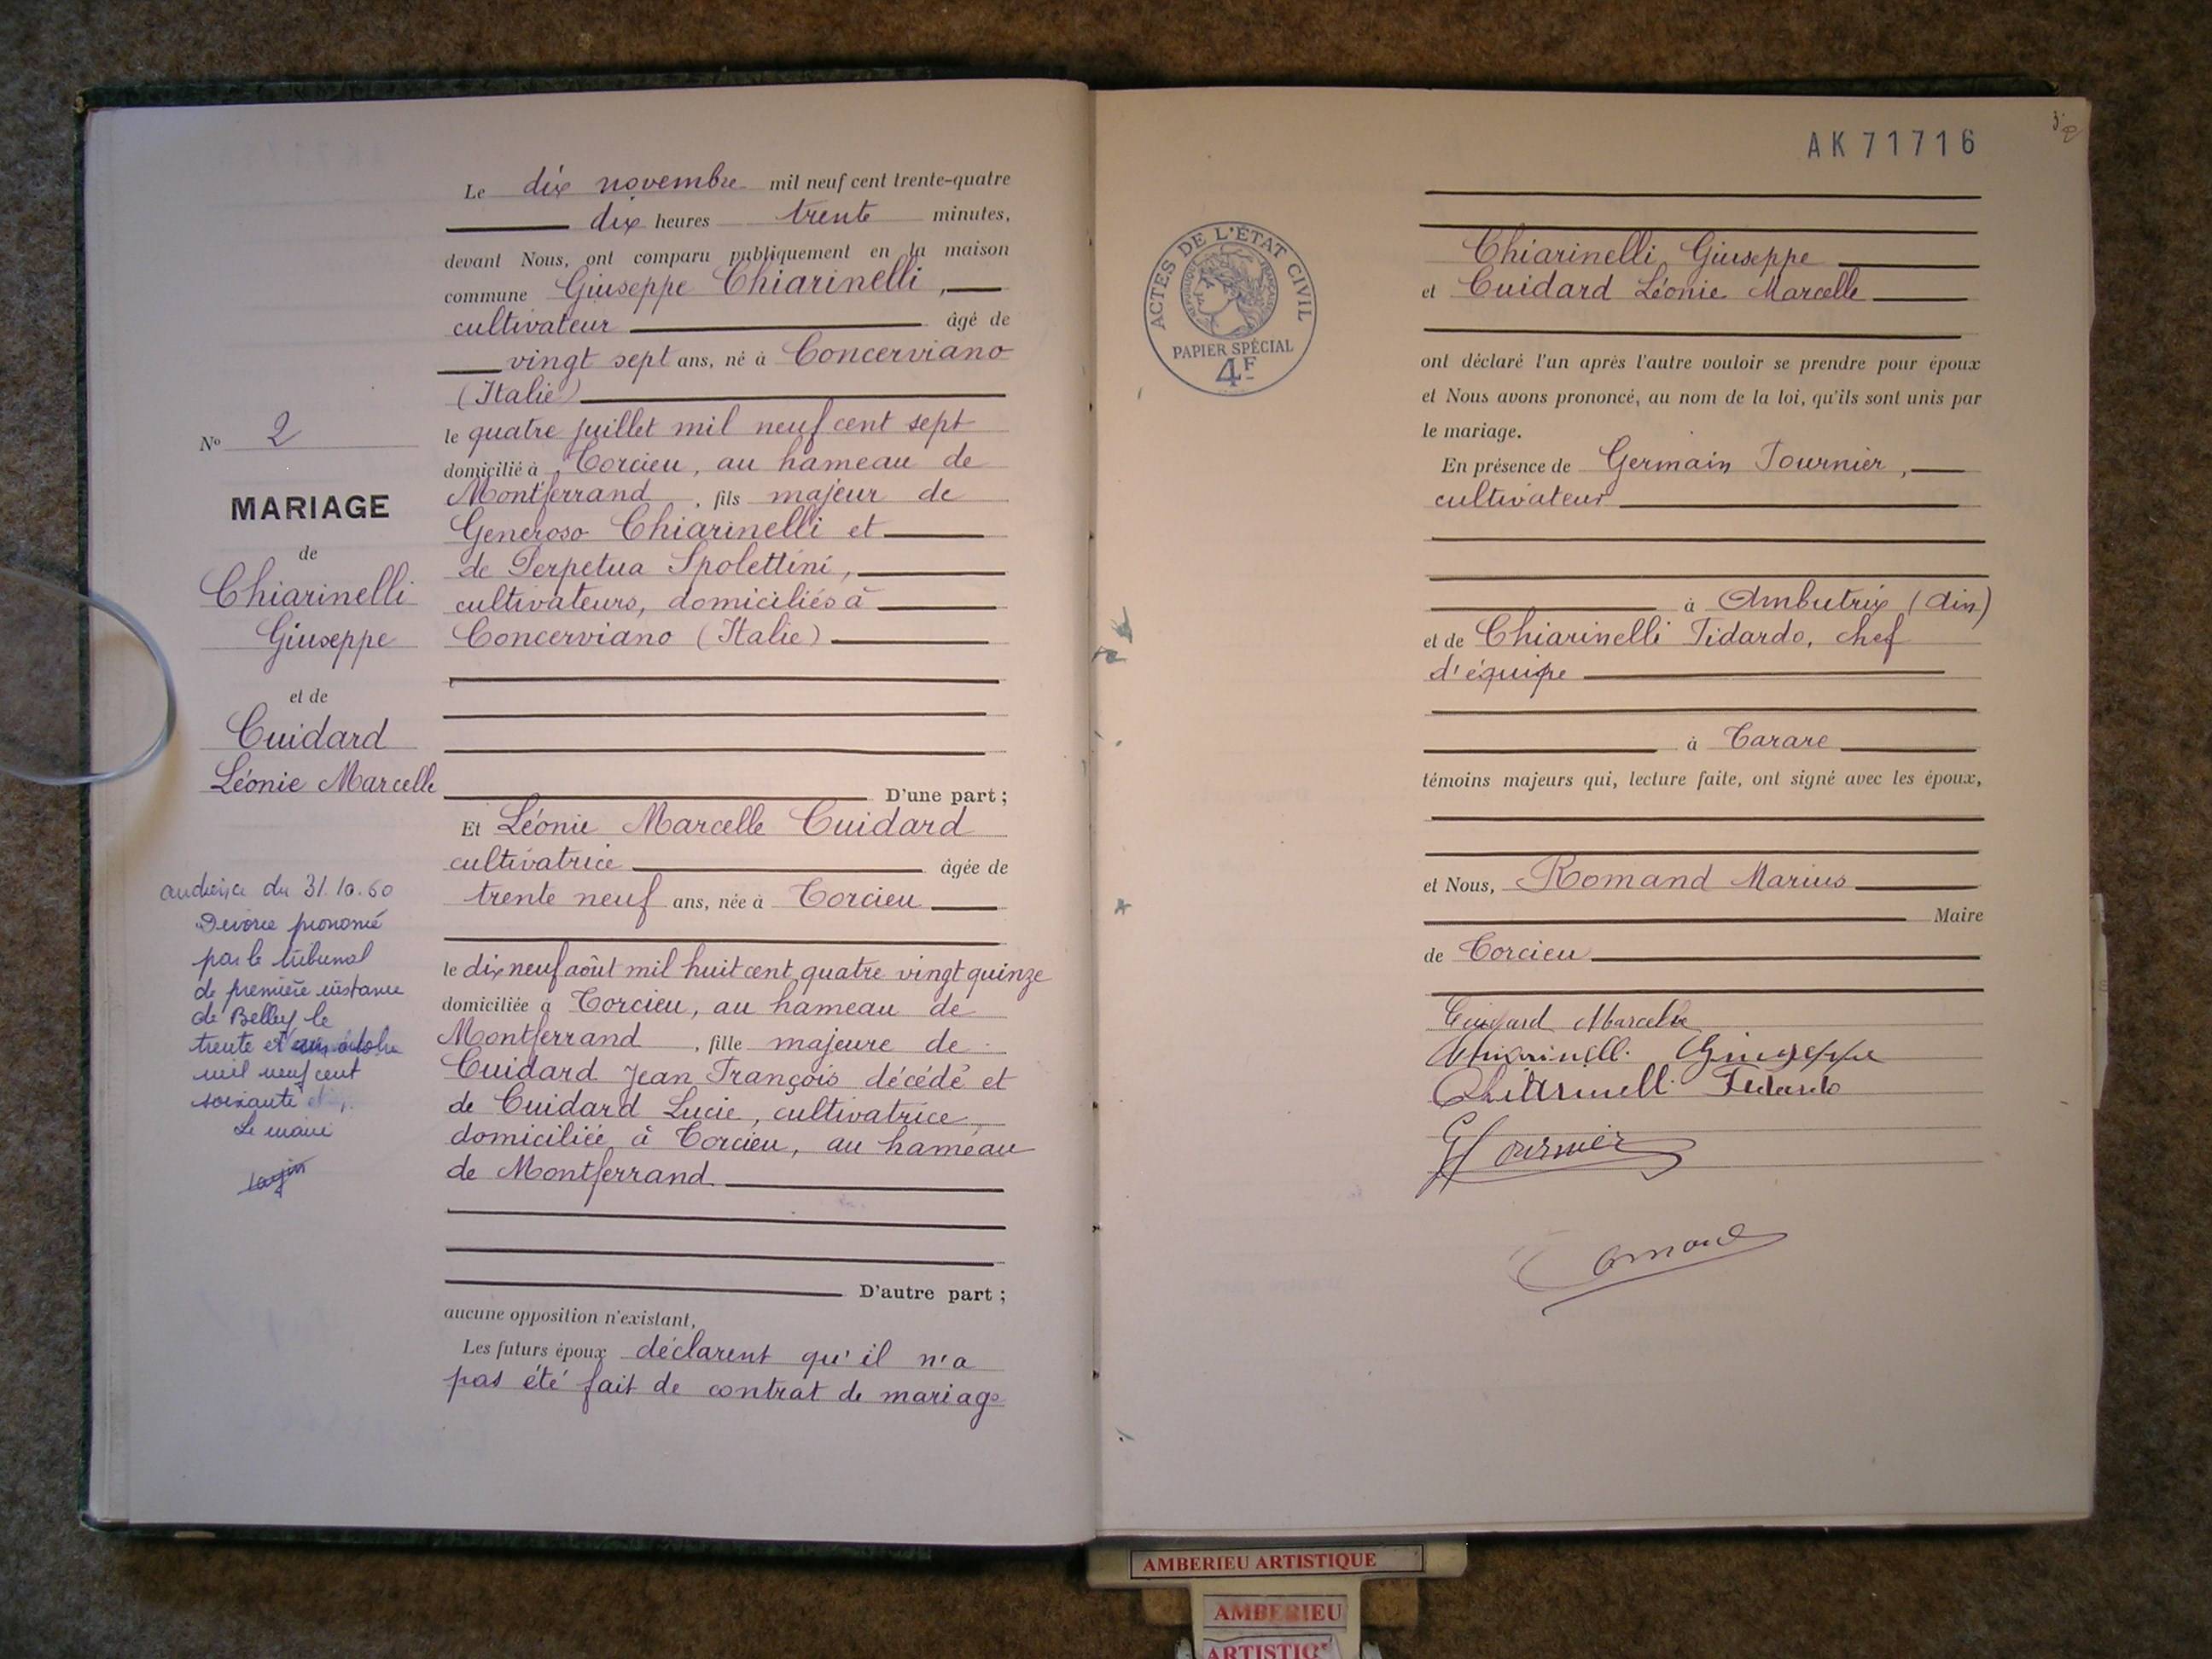 Le dix novembre mil neuf cent trente-quatre
dix heures trente minutes,
devant Nous, ont comparu publiquement en la maison
commune Giuseppe Chiarinelli,
cultivateur âgé de
vingt sept ans, né à Concerviano
(Italie)
le quatre juillet mil neuf cent sept
domicilié à, Torcieu, au hameau de
Montferrand, fils majeur de
Generoso Chiarinelli et
de Perpetua Spolettini,
cultivateurs, domiciliés à
Concerviano (Italie)
D'une part;
Et Léonie Marcelle Cuidard
cultivatrice âgée de
trente neuf ans, née à Torcieu
le dix neuf août mil huit cent quatre vingt quinze
domiciliée à Torcieu, au hameau de
Montferrand, fille majeure de
Cuidard Jean François décédé et
de Cuidard Lucie, cultivatrice,
domiciliée à Torcieu, au hameau
de Montferrand
D'autre part;
aucune opposition n'existant,
Les futurs époux déclarent qu'il n'a
pas été fait de contrat de mariage
No 2
MARIAGE
de
Chiarinelli
Giuseppe
et de
Cuidard
Léonie Marcelle
audience du 31.10.60
Divorce prononcé
par le tribunal
de première instance
de Belley le
trente et un octobre
mil neuf cent
soixante
Le maire
AK71716
ACTES DE L'ÉTAT CIVIL
RÉPUBLIQUE FRANÇAISE
PAPIER SPÉCIAL
4F
Chiarinelli Giuseppe
et Cuidard Léonie Marcelle
ont déclaré l'un après l'autre vouloir se prendre pour époux
et Nous avons prononcé, au nom de la loi, qu'ils sont unis par
le mariage.
En présence de Germain Fournier,
cultivateur
à Ambutrix (Ain)
et de Chiarinelli Fidardo, chef
d'équipe
à Tarare
témoins majeurs qui, lecture faite, ont signé avec les époux,
et Nous, Romand Marius
Maire
de Torcieu
Cuidard Marcelle
Chiarinelli Giuseppe
Chiarinelli Fidardo
G Fournier
Romand
AMBERIEU ARTISTIQUE
AMBERIEU
ARTISTIQ